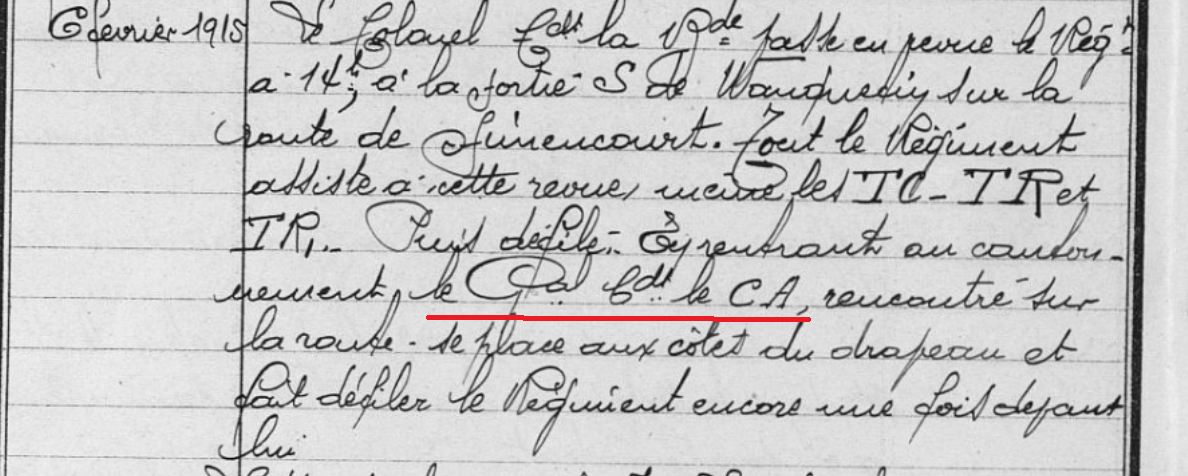 6 février 1915 Le Colonel Cdt la Bde passe en revue le Régt
à 14h, à la sortie S de Wanquetin sur la
route de Simencourt. Tout le Régiment
assiste à cette revue, même les TC - TR et
TR. Puis défilé. En rentrant au canton-
nement, le Gal Cdt le CA, rencontré sur
la route - se place aux côtés du drapeau et
fait défiler le Régiment encore une fois devant
lui